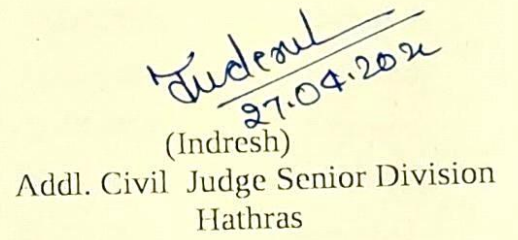 27.04.202
(Indresh)
Addl. Civil Judge Senior Division
Hathras